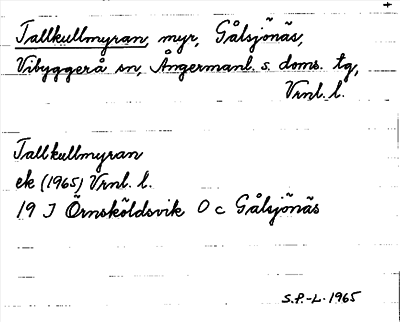 Tallkullmyran, myr, Gålsjönäs,
Vibyggerå sn, Ångermanl. s. doms. tg,
Vrnl. l.
Tallkullmyran
ek (1965) Vrnl. l.
19 J Örnsköldsvik 0 c Gålsjönäs
S.P.-L. 1965